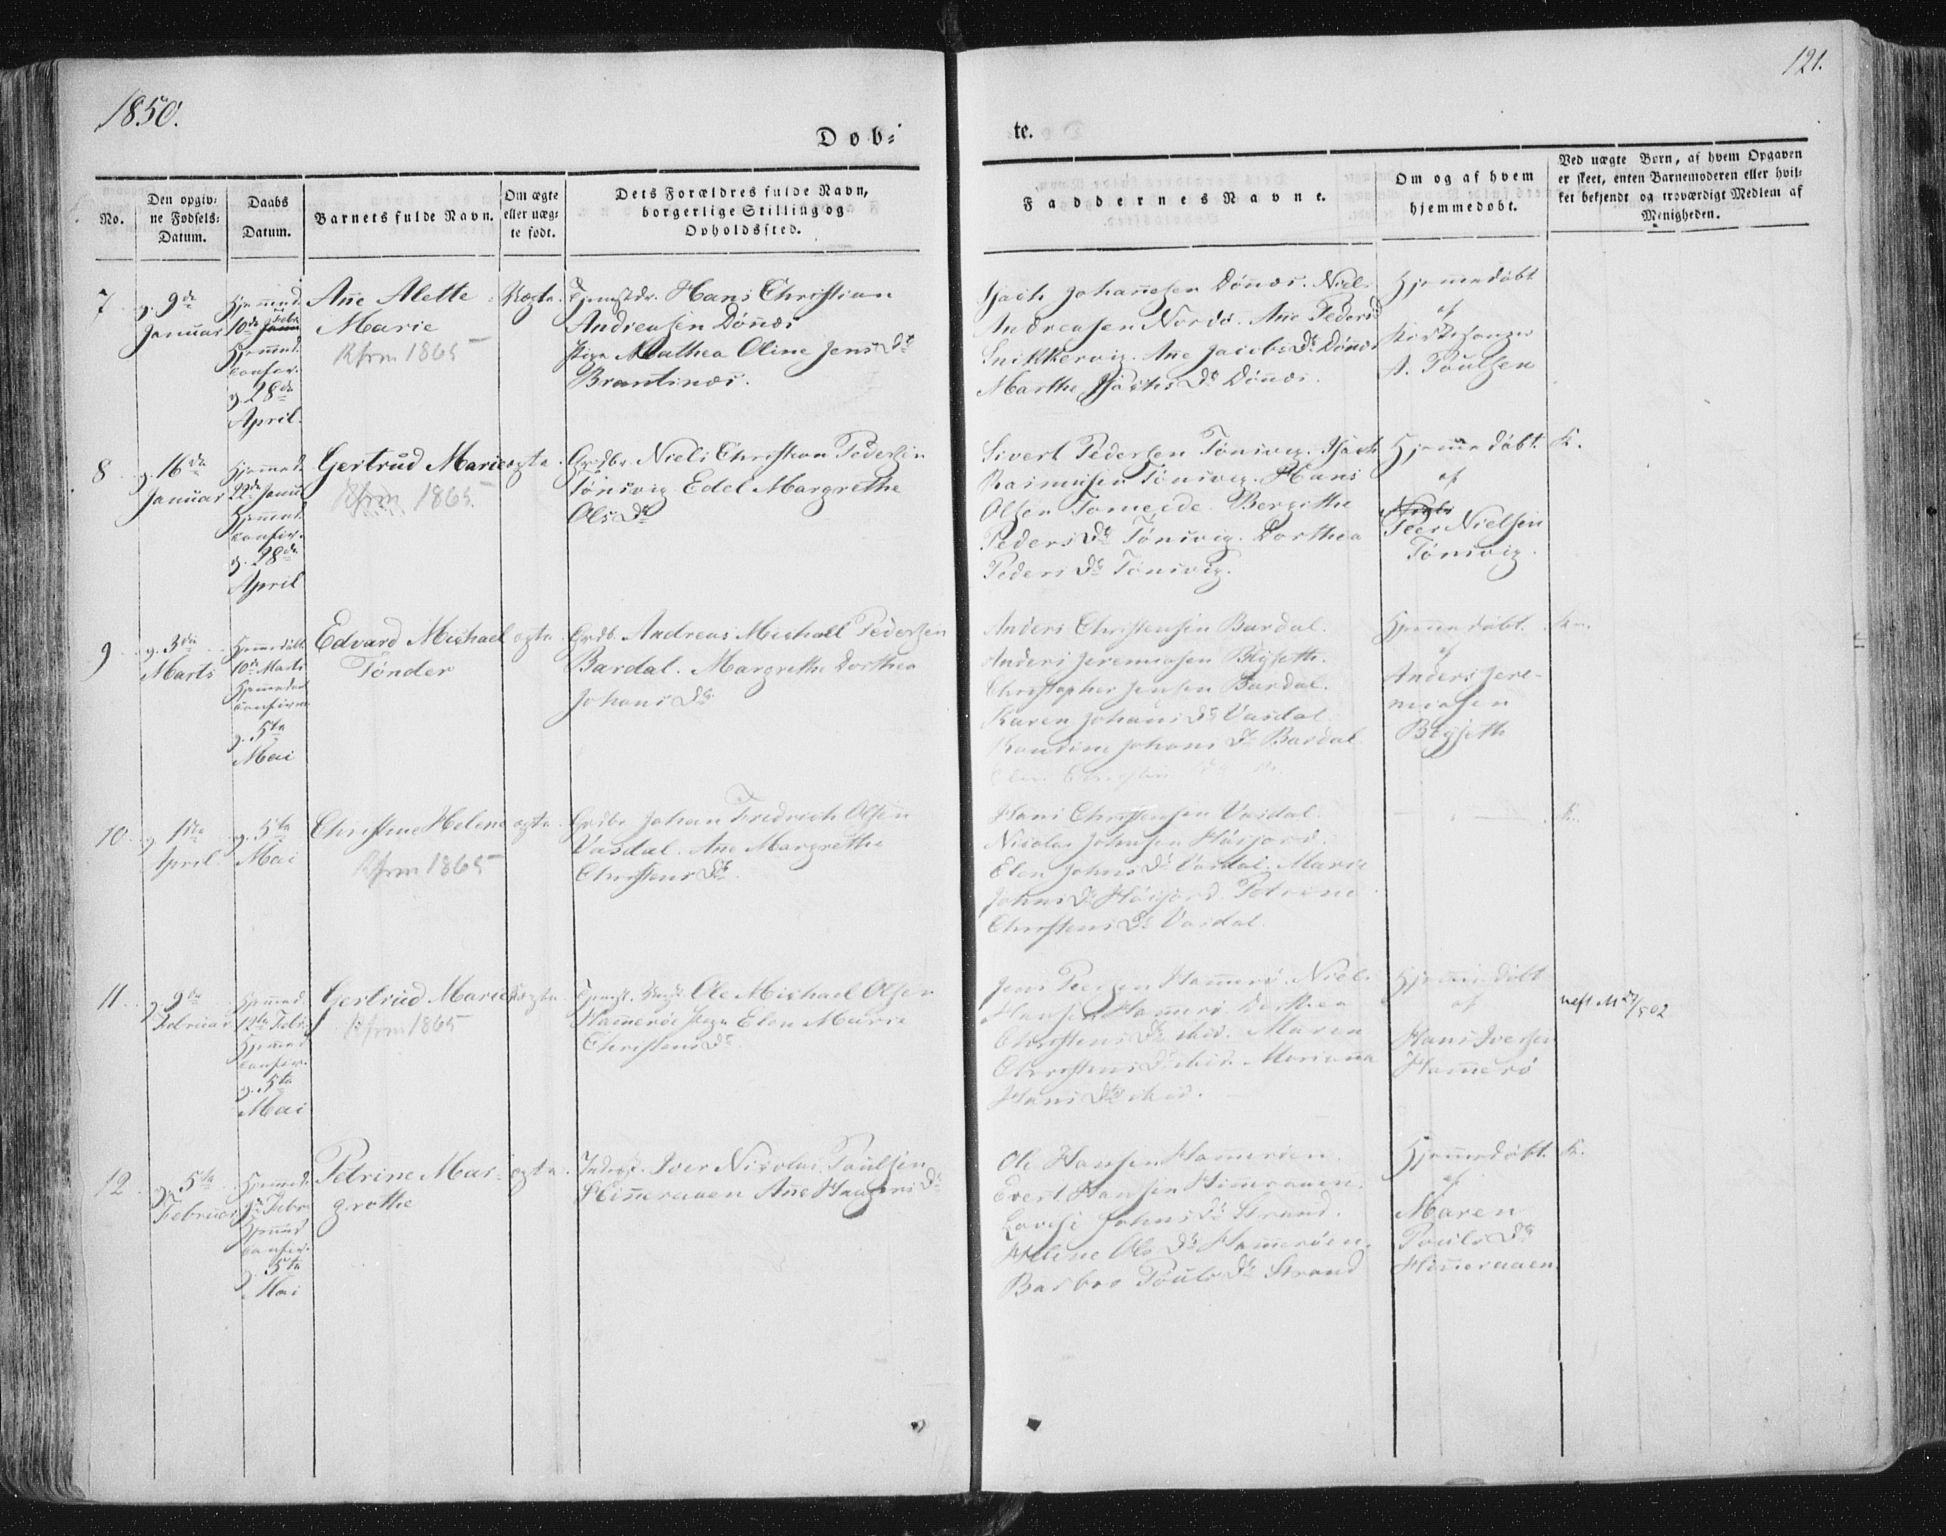 1850.
121.
Døb=
te.
No.
Den opgiv=
ne Fødsels=
Datum.
Daabs
Datum.
Barnets fulde Navn.
Om ægte
eller uæg=
te født.
Dets Forældres fulde Navn,
borgerlige Stilling og
Opholdssted.
Faddernes Navne.
Om og af hvem
hjemmedøbt.
Ved uægte Børn, af hvem Opgaven
er skeet, enten Barnemoderen eller hvil=
ket bekjendt og troværdigt Medlem af
Menigheden.
7
9de
Januar
Hjemmed.
10de Febr
Hjemmed.
confir.
28de
April.
Ane Alette
Marie
Kfrm 1865
Uægte.
Hans Christian
Andreasen Dønæs
Pige Mathea Oline Jens Dr
Brantsnæs.
Isach Johannesen Dønæs. Niels
Andreasen Nordø. Ane Peders
Snikkervig. Ane Jacobs Dr Dønæs
Marthe Isachs Dr Dønæs.
Hjemmedøbt
af
Kirkesanger
A. Poulsen
8
16de
Januar
Hjemmed.
22de Janur
Hjemmed.
confir.
28de
April
Gertrud Marie
Kfrm 1865
ægte.
Grdbr. Niels Christian Pedersen
Tønsvig Edel Margrethe
Ols Dr
Sivert Pedersen Tønsvig. Isach
Rasmusen Tønsvig. Hans
Olsen Tomeide. Bergithe
Peders Dr Tønsvig. Dorthea
Peders Dr Tønsvig.
Hjemmedøbt.
af
Peer Nielsen
Tønsvig.
K.
9
3die
Marts
Hjemmedøbt
10de Marts
Hjemmedaab
confirm.
5te
Mai
Edvard Michael
Tønder
ægte
Grdb. Andreas Michall Pedersen
Bardal. Margrethe Dorthea
Johans Dr
Anders Christensen Bardal.
Anders Jeremiasen Blyseth.
Christopher Jensen Bardal.
Karen Johans Dr Vasdal
Johans Dr Bardal
Hjemmedøbt.
af
Anders Jere-
miasen
Blyseth
K.
10.
1ste
April
5te
Mai
Christine Helene
Kfrm 1865
ægte.
Grdbr Johan Fredrich Olsen
Vasdal. Ane Margrethe
Christens Dr.
Hans Christensen Vasdal.
Nicolai Johnsen Høifjord.
Elen Johns Dr Vasdal. Marie
Johns Dr Høifjord. Petrine
Christens Dr Vasdal.
K.
11
9de
Februar
Hjemmed.
12te Febr.
Hjemmed
confir.
5te
Mai
Gertrud Marie
Kfrm 1865
Uægte.
Ole Michael Olsen
Hammerøe Pige Elen Marie
Christens Dr
Jens Hammerø. Niels
Hansen Hammerø. Dorthea
Christens Dr ibid. Maren
Christens Dr ibid. Marianna
Hans Dr ibid.
Hjemmedøbt
af
Hans Iversen
Hammerø
12
5te
Februar
Hjemmed.
9de Febr
Hjemmed
confir.
5te
Mai
Petrine Mar-
grethe
ægte.
Inderst. Iver Nicolai Poulsen
Himeraaen Ane Hans Dr
Ole Hansen Hammerøen.
Evert Hansen Himeraaen.
Lovise Johns Dr Strand.
Helene Ols Dr Hammerøen.
Barbro Pouls Dr Strand
Hjemmedøbt.
af
Maren
Pouls Dr
Himeraaen
K.